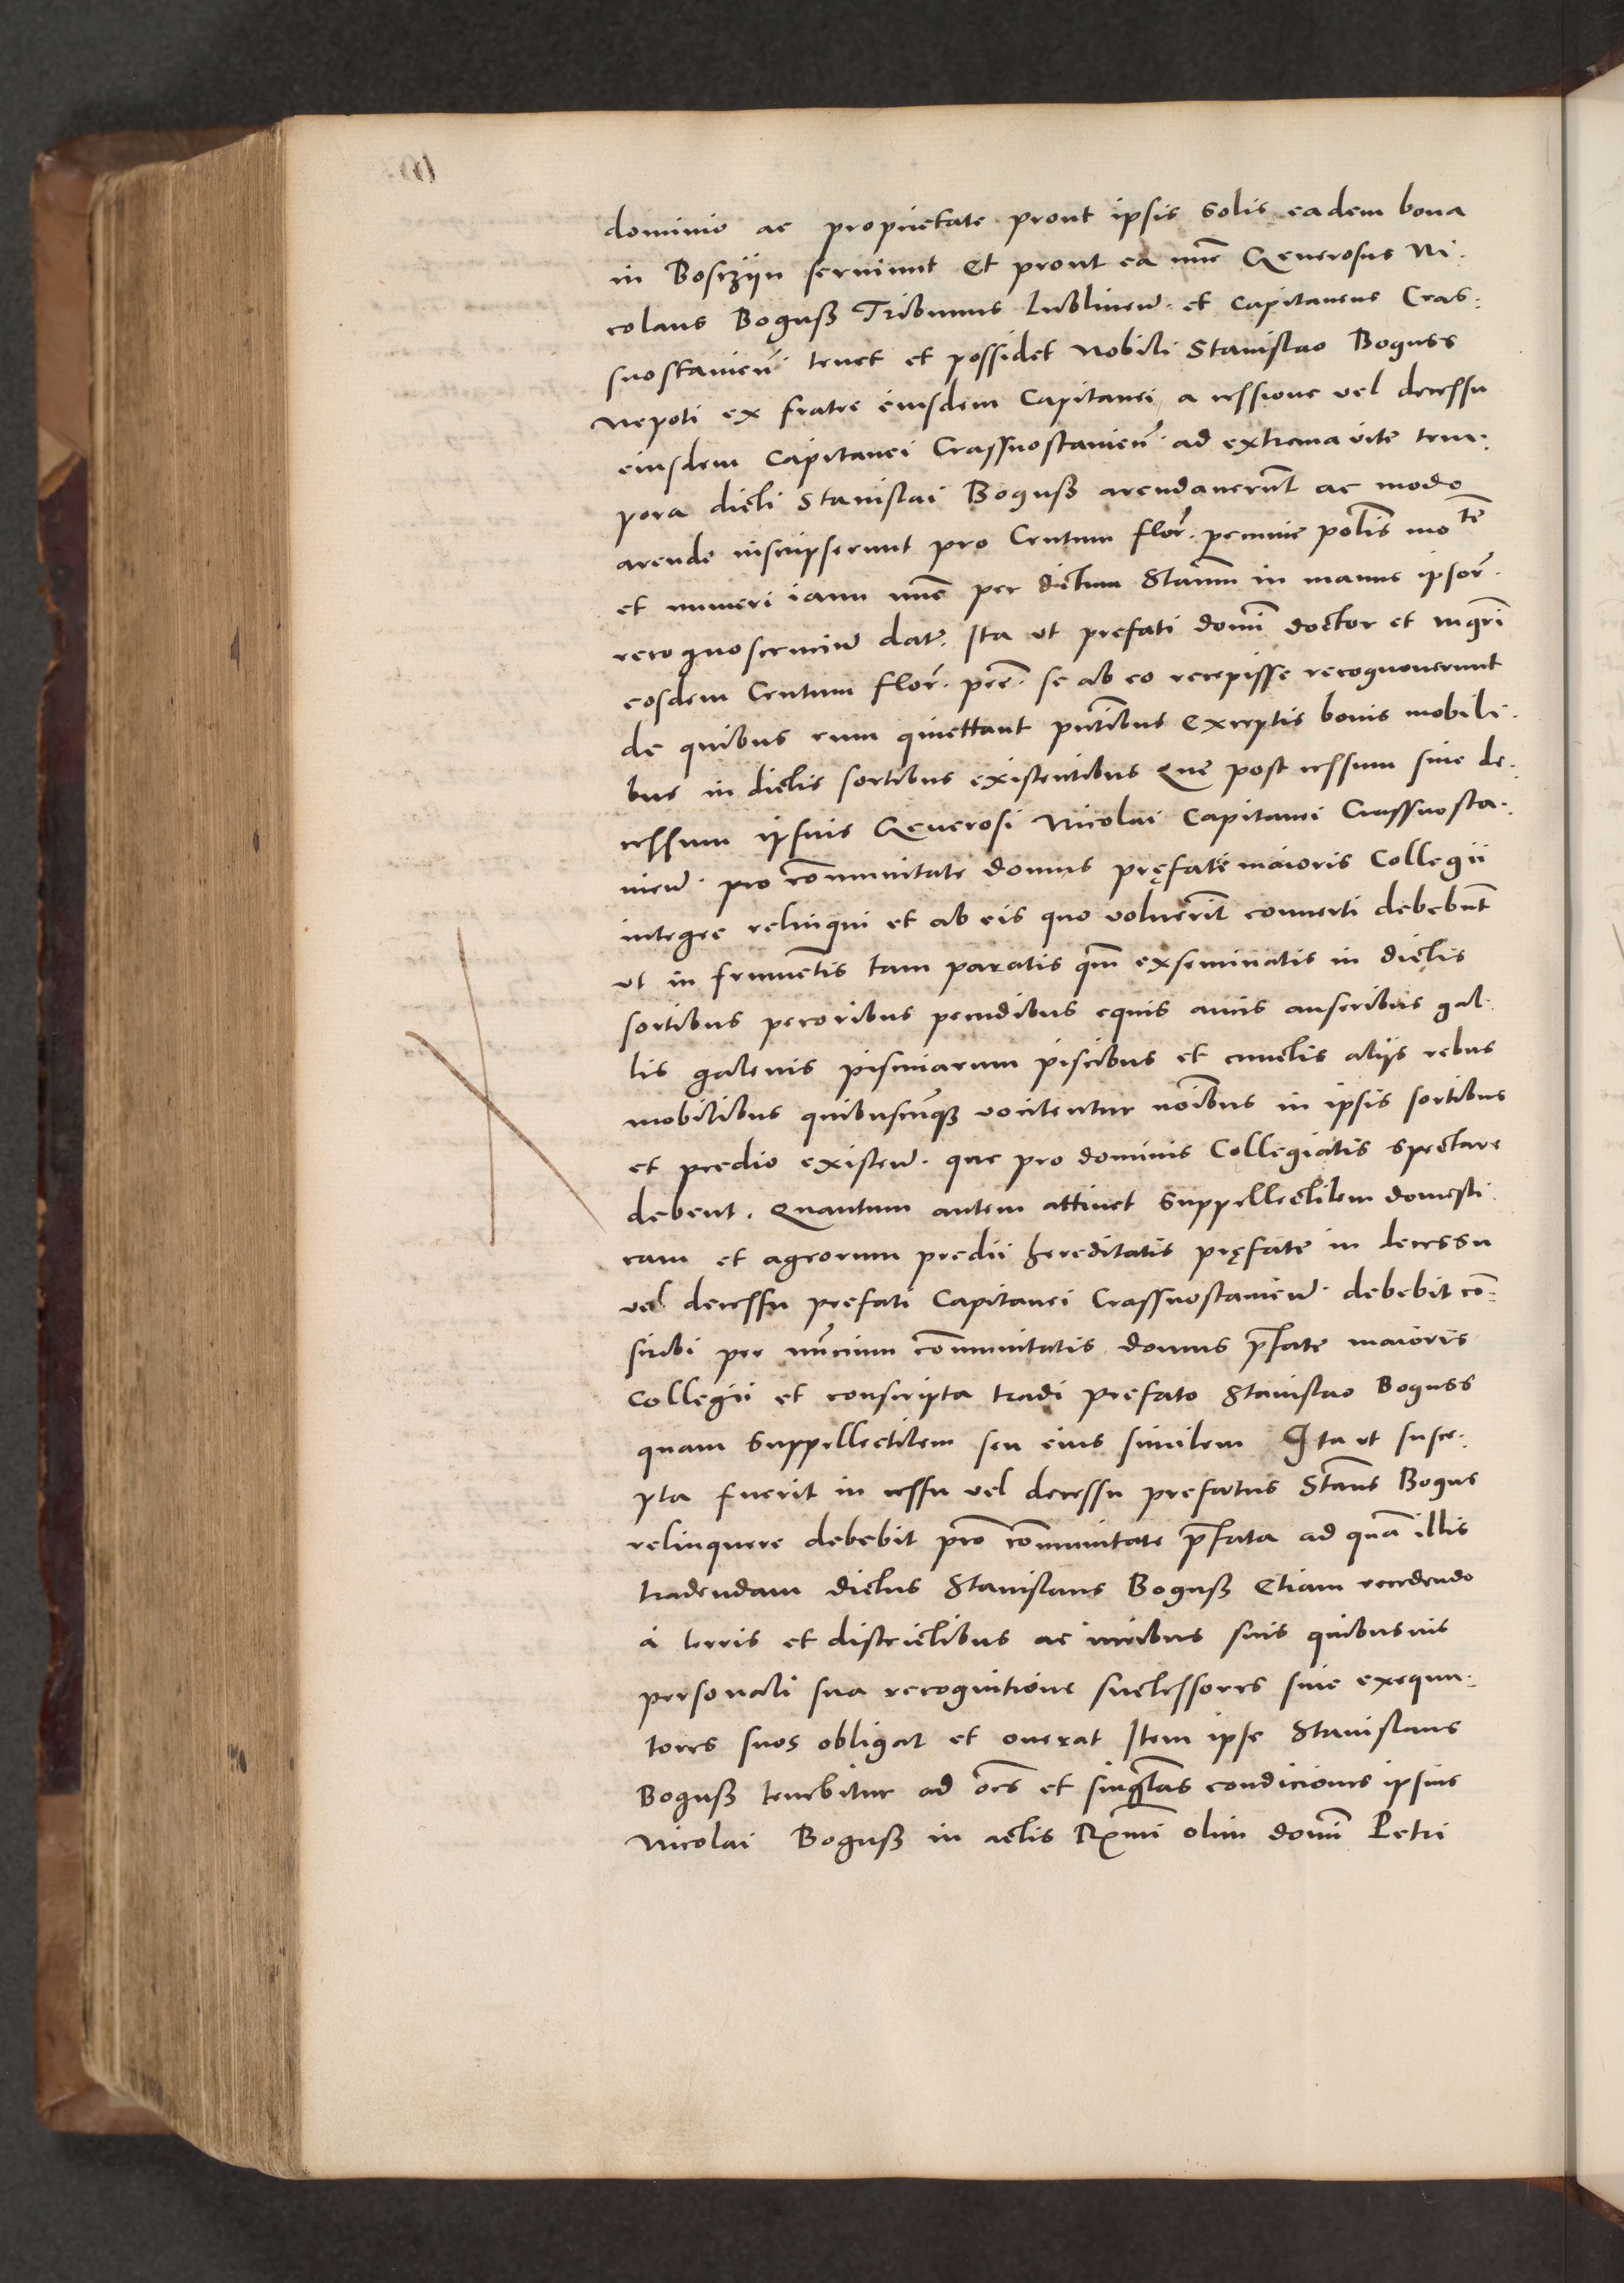 dominio ac proprietate prout ipsis solis eadem bona
in Bosczÿn serviunt Et prout ea nunc Generosus Ni.
colaus Boguß Tribunus Lublinen. et Capitaneus Cras:
snostamien. tenet et possidet Nobili Stanislao Boguss
Nepoti ex fratre eiusdem Capitanei a cessione vel decessu
eiusdem Capitanei Crassnostamien. ad extrema vite tem.
pora dicti Stanislai Boguß arendaverunt ac modo
arende inscripserunt pro Centum flor. pecunie polis mote
et numeri iam nunc per dictum Stanm in manus ipsor.
recognoscencium dat. Ita ut prefati domi doctor et mgri
eosdem Centum flor. pre. se ab eo recepisse recognoverunt
de quibus eum quiettant pntibus Exceptis bonis mobili.
bus in dictis sortibus existentibus Que post cessum sive de.
cessum ipsius Generosi Nicolai Capitanei Crassnosta.
mien. pro comunitate domus pręfate maioris Collegii
integre relinqui et ab eis quo voluerit converti debebunt
ut in frumentis tam paratis qm exseminatis in dictis
sortibus pecoribus pecudibus equis aucis anseribus gal.
lis galenis piscinarum piscibus et cunctis alÿs rebus
mobilibus quibuscunqz vocitentur noibus in ipsis sortibus
et predio existen. que pro dominis Collegiatis spectare
debent. Quantum autem attinet Suppellectilem domesti.
cam et agrorum predii hereditatis pręfate in decessu
vel decessu prefati Capitanei Crassnostamien. debebit co:
scribi per nuncium comunitatis domus pfate maioris
Collegii et conscripta tradi prefato Stanislao Boguss
quam Suppellectilem seu eius similem Ita ut susce.
pta fuerit in cessu vel decessu prefatus Stans Bogus
relinquere debebit pro comunitate pfata ad qua illis
tradendam dictus Stanislaus Boguß Etiam recedendo
a terris et districtibus ac iuribus suis quibusvis
personali sua recognitione successores sive exequu.
tores suos obligat et onerat Item ipse Stanislaus
Boguß tenebitur ad oes et singlas condiciones ipsius
Nicolai Boguß in actis Rxmi olim domi Petri